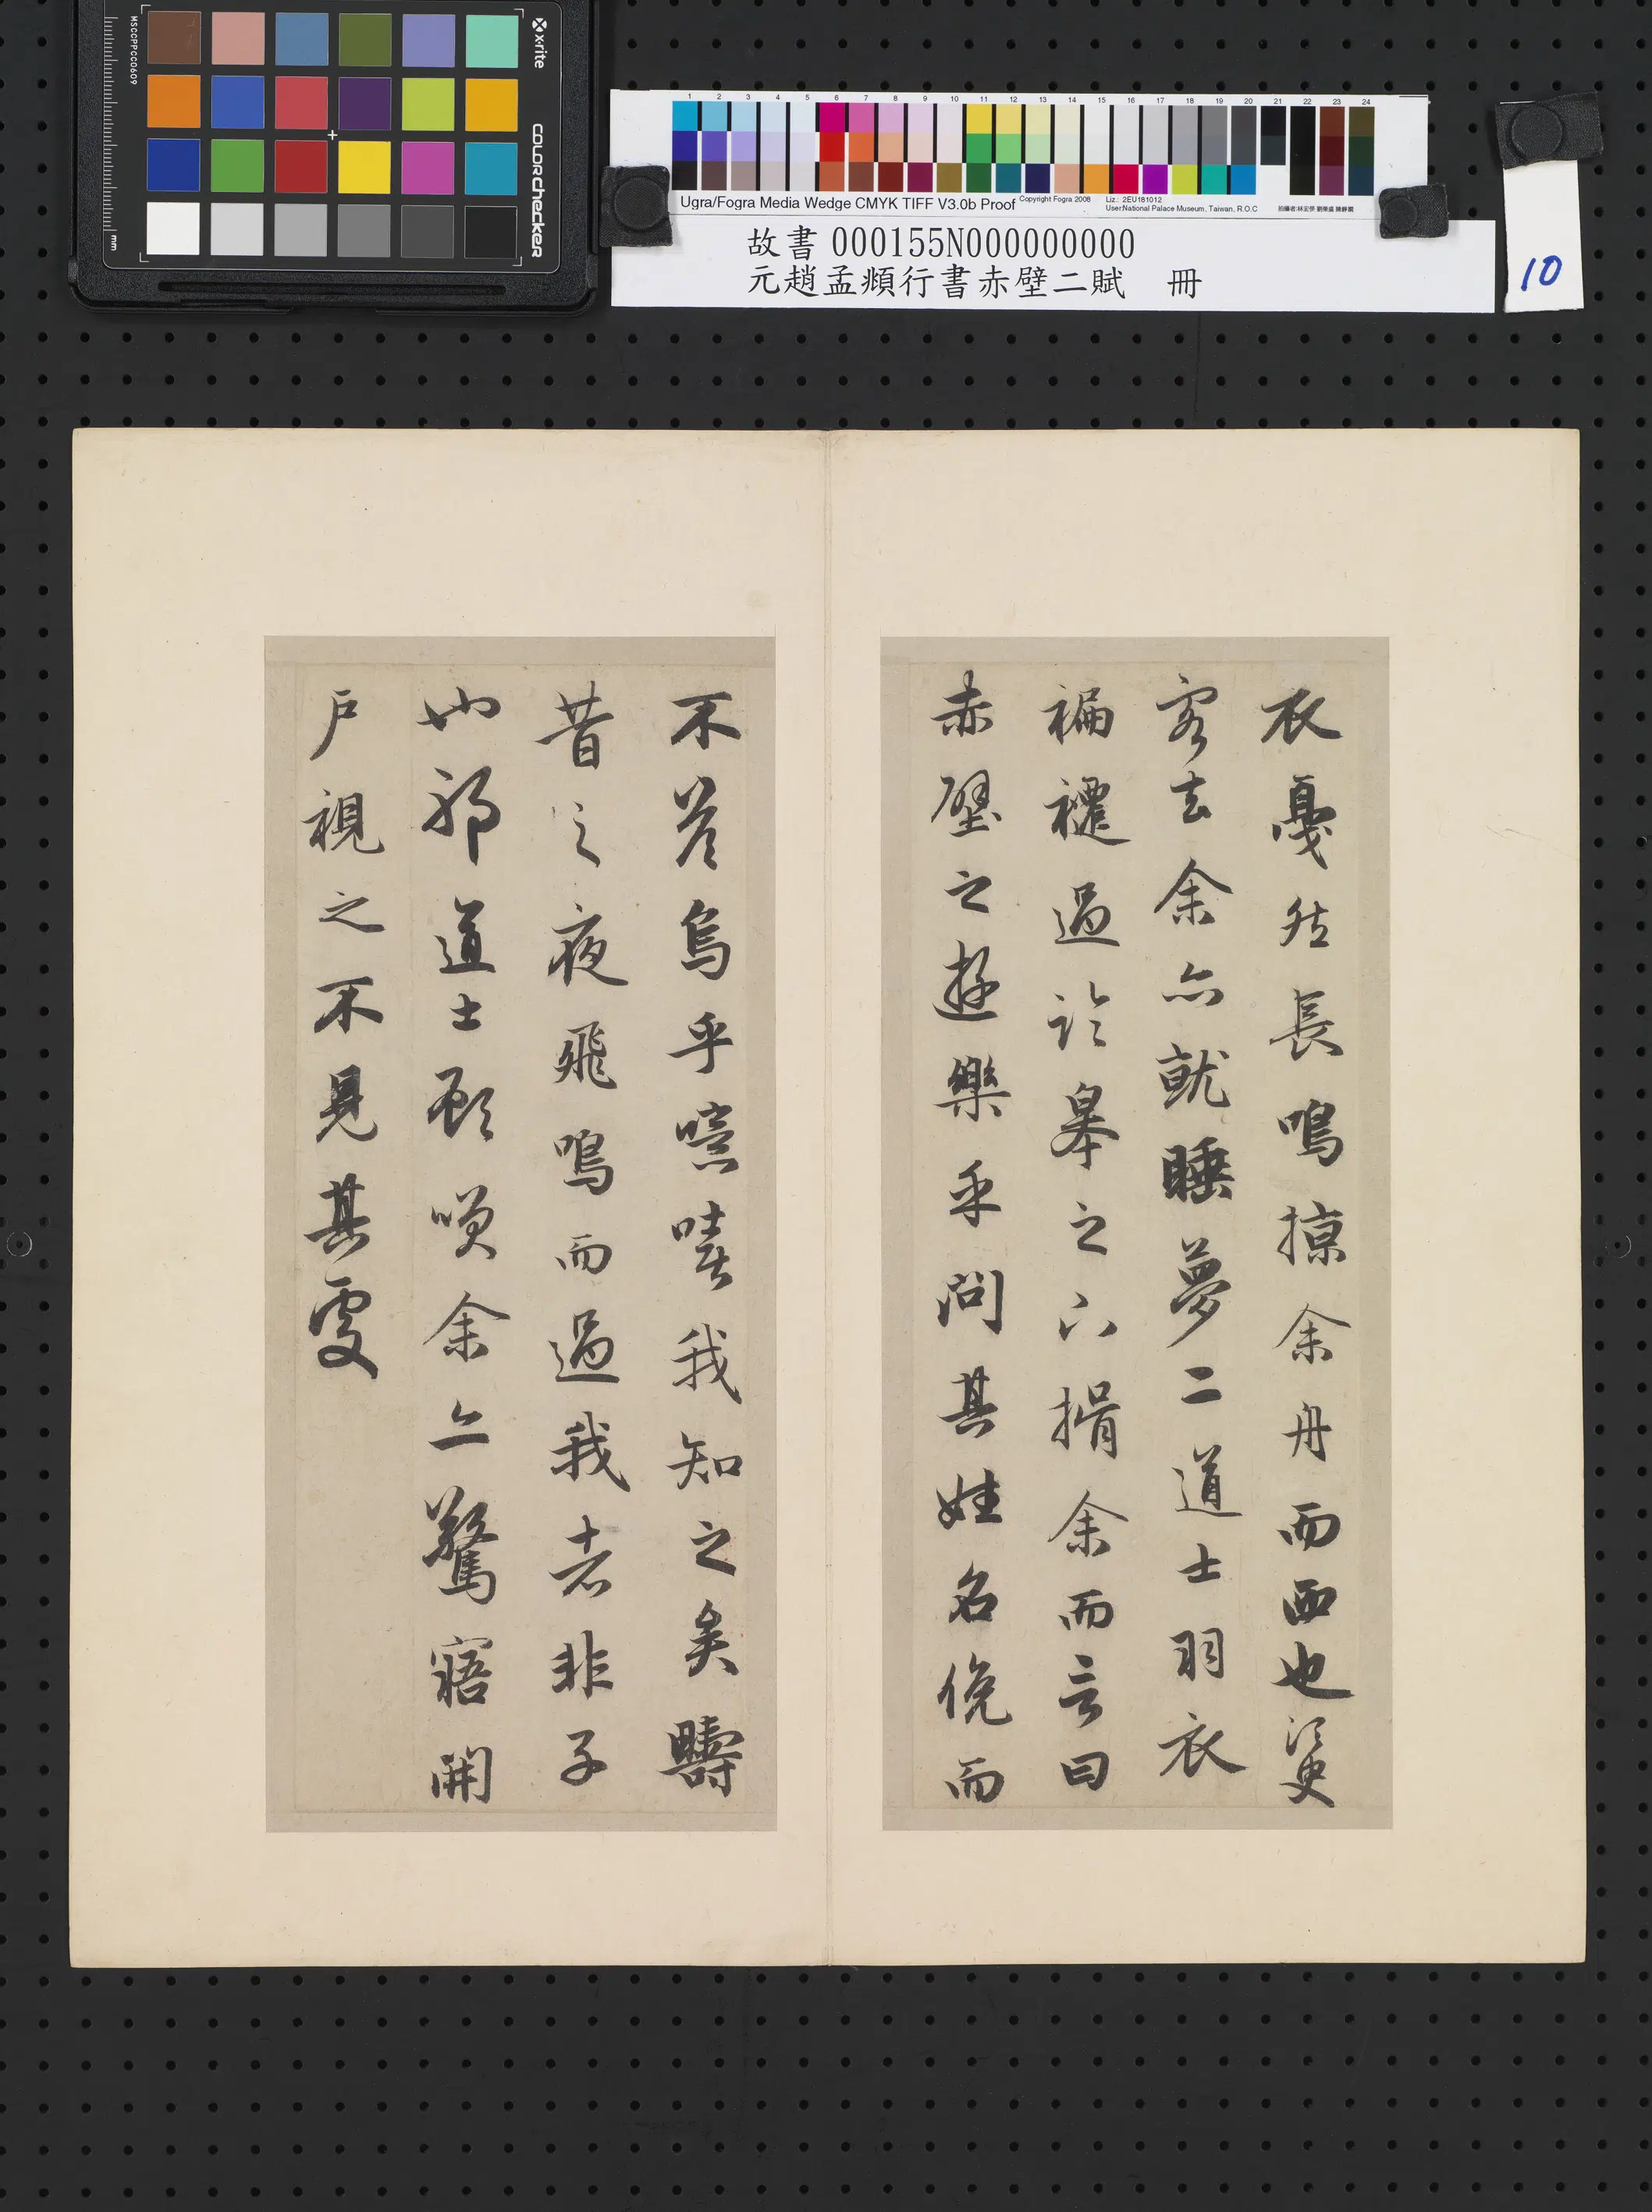 MSCCPPCC0609
x-rite
colorchecker
mm
1 2 3 4 5 6 7 8 9 10 11 12 13 14 15 16 17 18 19 20 21 22 23 24
Ugra/Fogra Media Wedge CMYK TIFF V3.0b Proof
Copyright Fogra 2008
Liz.: 2EU181012
User:National Palace Museum, Taiwan, R.O.C
故書 000155N000000000
元趙孟頫行書赤壁二賦 冊
10
衣戛然長鳴掠余舟而西也須臾
客去余亦就睡夢二道士羽衣
褊褼過臨皋之下揖余而言曰
赤壁之遊樂乎問其姓名俛而
不答烏乎噫嘻我知之矣疇
昔之夜飛鳴而過我者非子
也邪道士顧咲余亦驚寤開
戶視之不見其處